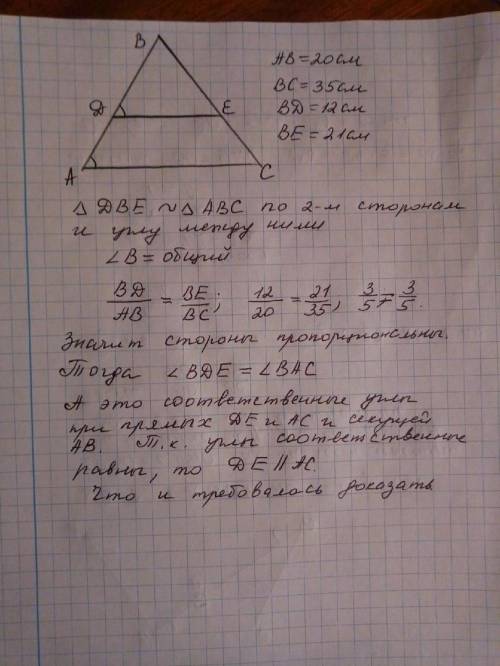 B
AB=20см
BC=35см
D
E
BD=12см
BE=21см
A
C
△ DBE ~ △ ABC по 2-м сторонам
и углу между ними
∠B = общий
BD/AB = BE/BC; 12/20 = 21/35, 3/5 = 3/5.
Значит стороны пропорциональны.
Тогда ∠BDE = ∠BAC
А это соответственные углы
при прямых DE и AC и секущей
AB. Т.к. углы соответственные
равны, то DE || AC.
Что и требовалось доказать